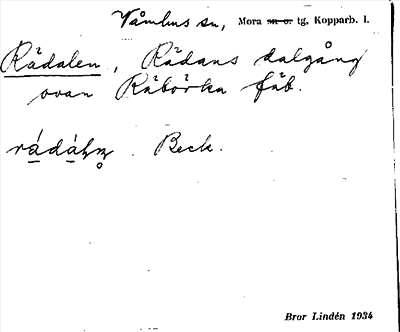 Våmhus sn, Mora sn or tg, Kopparb. l.
Rädalen, Rädans dalgång
ovan Räbörka fäb.
Beck.
Bror Lindén 1934